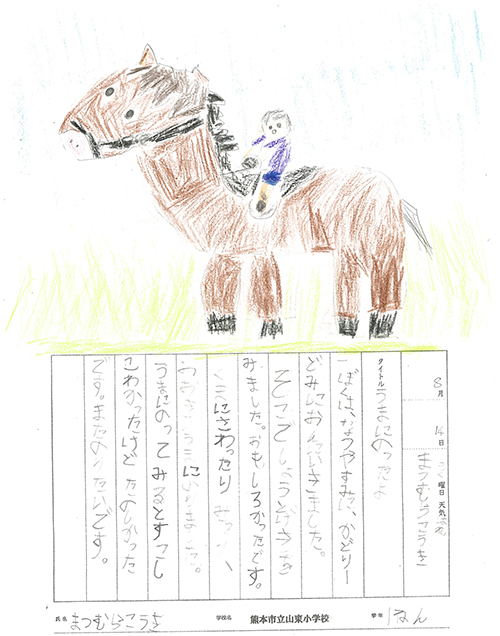 8月 14日 曜日 天気 はれ
まつむらこうき
タイトル うまにのったよ
ぼくは、なつやすみに、かどりー
どみにおんにいきました。
そこで
みました。おもしろかったです。
にさわったり
うまにのってみるとすこし
こわかったけどたのしかった
です。またのりたいです。
氏名 まつむらこうき 学校名 熊本市立山東小学校 学年 1ねん